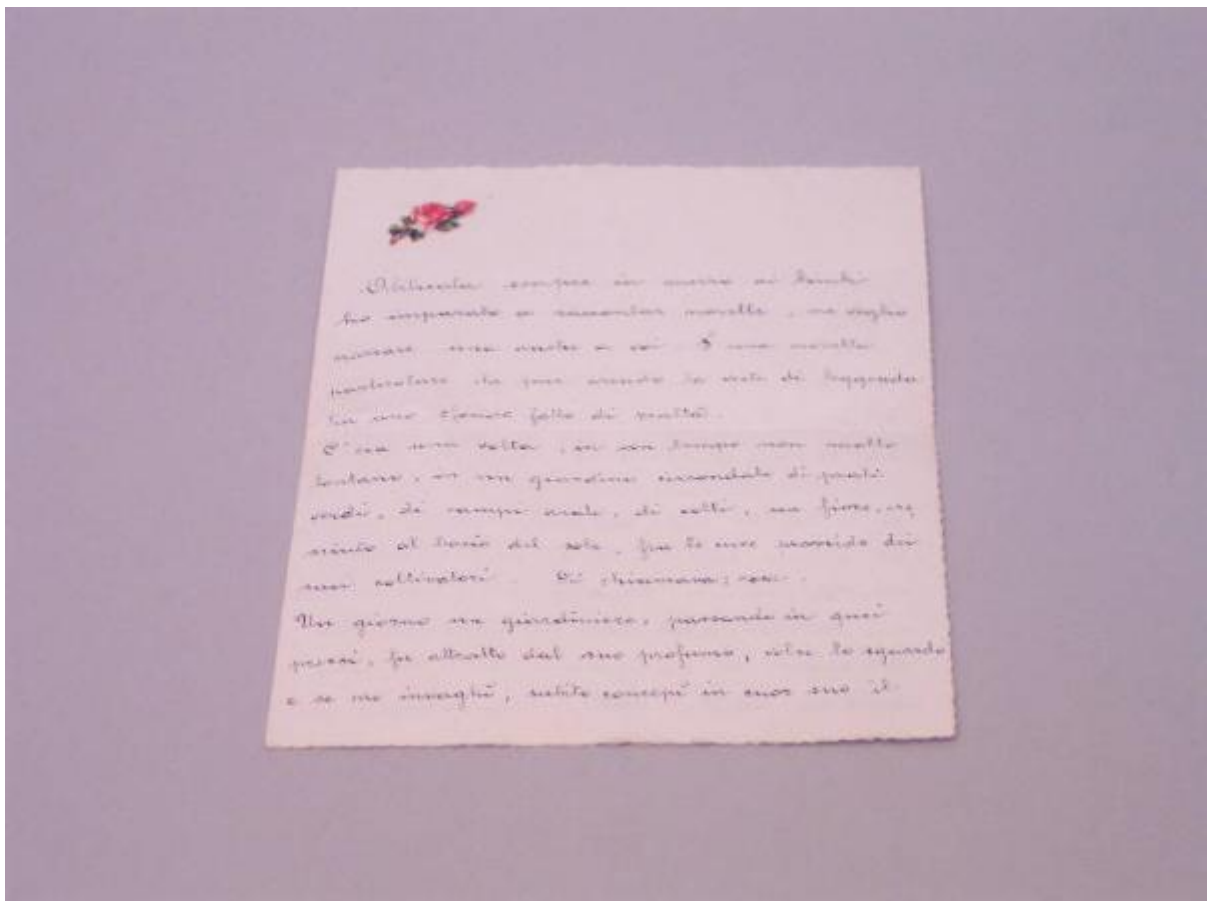 Abituata sempre in mezzo ai bimbi
ho imparato a raccontar novelle, ne voglio
narrare una anche a voi. È una novella
particolare che pur avendo la veste di leggenda
ha uno sfondo fatto di realtà.
C'era una volta, in un tempo non molto
lontano, in un giardino circondato di prati
verdi, di campi arati, di colli, un fiore,
al bacio del sole, fra le cure dei
suoi coltivatori. Si chiamava: rosa.
Un giorno un giardiniere, passando in quei
pressi, fu attratto dal suo profumo, volse lo sguardo
e se ne invaghì, subito concepì in cuor suo il